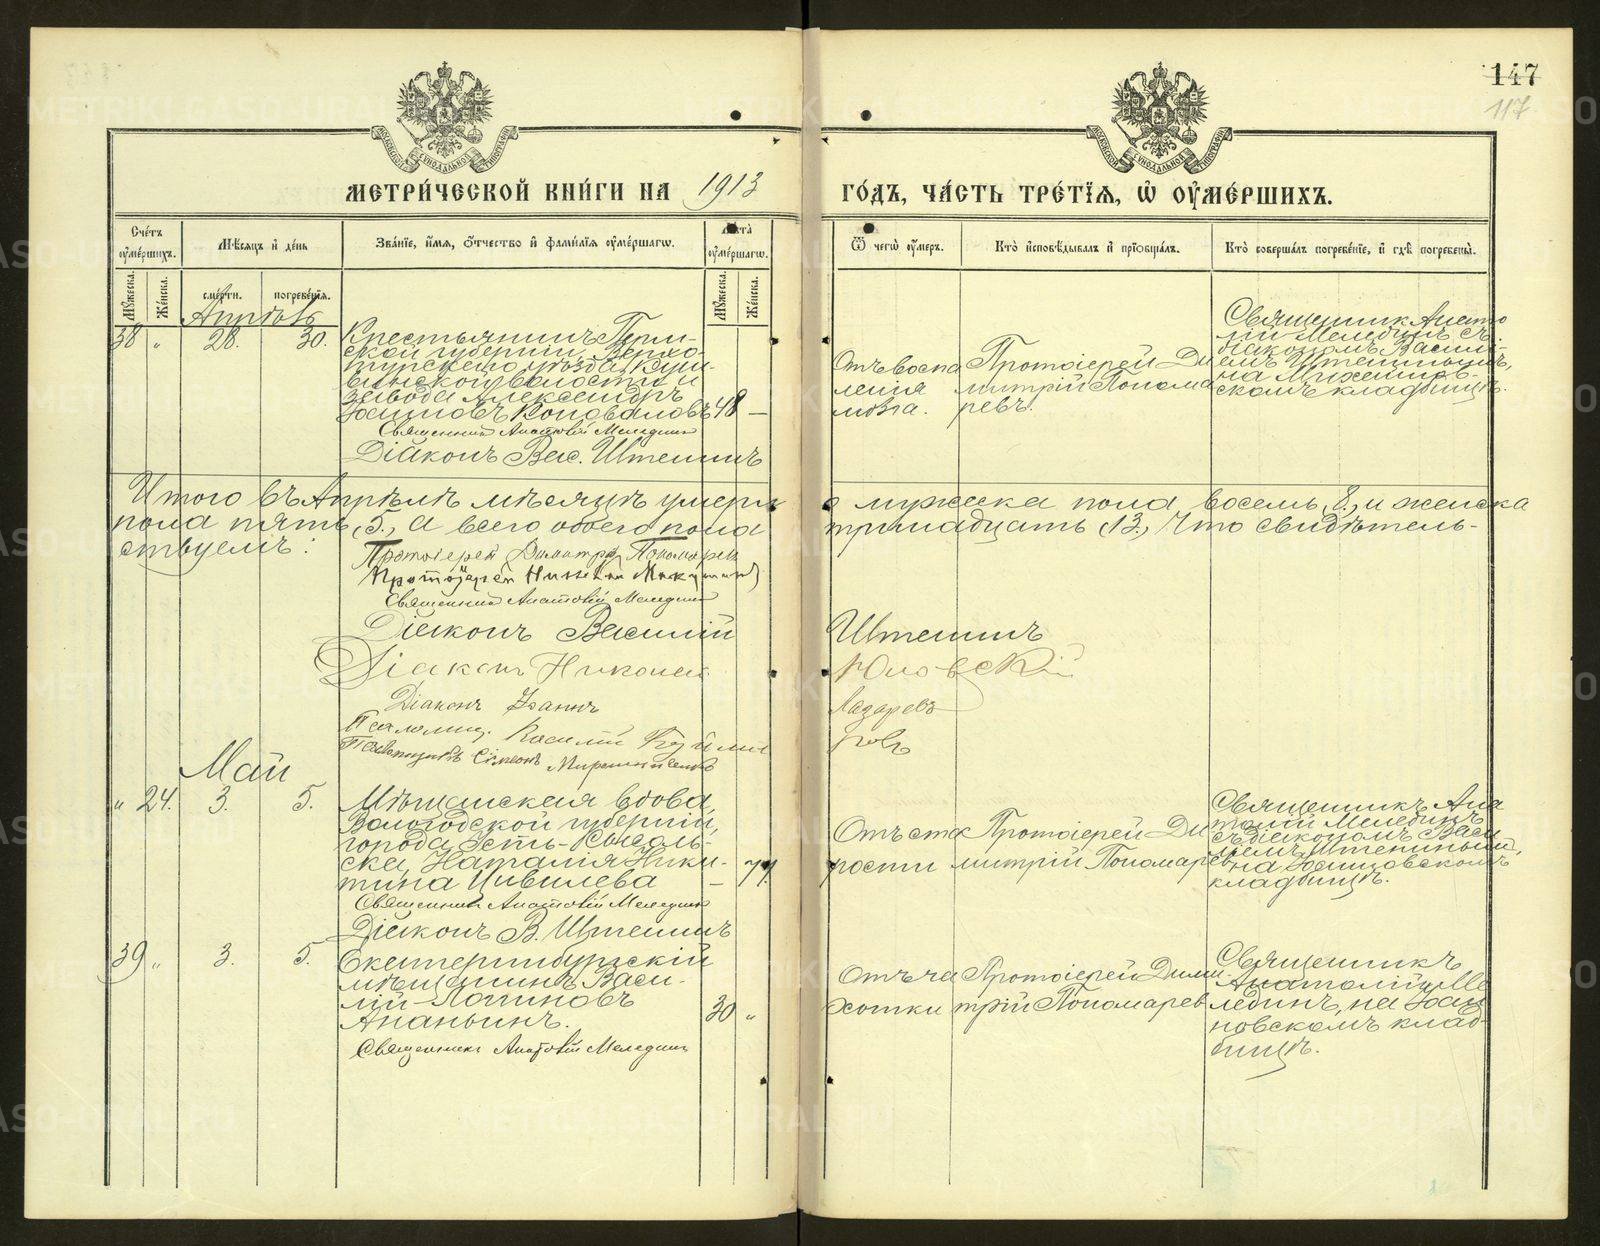 147
117
МЕТРИ́ЧЕСКОЙ КНИ́ГИ НА 1913 ГО́ДЪ, ЧА́СТЬ ТРЕ́ТЇѦ, Ѡ҆ ОУ҆МЕ́РШИХЪ.
Сче́тъ оу҆ме́ршихъ.
Мꙋ́жеска.
Же́нска.
Мѣ́сѧцъ и҆ де́нь
сме́рти.
погребе́нїѧ.
Зва́нїе, и҆́мѧ, ѻ҆́тчество и҆ фами́лїѧ оу҆ме́ршагѡ.
Лѣ́та оу҆ме́ршагѡ.
Мꙋ́жеска.
Же́нска.
Ѿ чегѡ̀ оу҆́меръ.
Кто̀ и҆сповѣ́дывалъ и҆ прїѡбща́лъ.
Кто̀ соверша́лъ погребе́нїе, и҆ гдѣ̀ погребены̀.
Апрѣль
38 " 28. 30.
Крестьянинъ Перм-
ской губерніи, Верхо-
турскаго уѣзда, Куш-
винской волости и
завода Александръ
Іоанновъ Коноваловъ 48 —
Священникъ Анатолій Мелединъ
Діаконъ Вас. Штенинъ
Отъ воспа
ленія
мозга.
Протоіерей Ди
митрій Понома
ревъ.
Священник Анато
лій Меледин съ
діакономъ Васили-
емъ Штенинымъ,
на Михайлов-
скомъ кладбищѣ.
Итого въ Апрѣлѣ мѣсяцѣ умерло мужеска пола восемь, 8, и женска
пола пять, 5, а всего обоего пола тринадцать (13), Что свидѣтель-
ствуемъ:
Протоіерей Димитрій Пономарев
Протоіерей
Священник Анатолій Меледин
Діаконъ Василій Штенинъ
Діакон Николай Юновский
Діаконъ Іоаннъ Лазаревъ
Псаломщ. Василій
Псаломщикъ Симеонъ
Май
" 24. 3. 5.
Мѣщанская вдова,
Вологодской губерніи,
города Усть-Сысоль-
ска, Наталія Ники-
тина Цивилева — 77.
Священник Анатолій Меледин
Діаконъ В. Штенинъ
Отъ ста
рости
Протоіерей Ди
митрій Пономарев
Священникъ Ана
толій Мелединъ
съ діакономъ Васи
ліемъ Штенинымъ,
на Іоанновскомъ
кладбищѣ.
39 " 3. 5.
Екатеринбургскій
мѣщанинъ Васи-
лій Логиновъ
Ананьинъ. 30 "
Священник Анатолій Меледин
Отъ ча
хотки
Протоіерей Дими-
трій Пономарев
Священникъ
Анатолій Ме
лединъ, на Іоан
новскомъ клад-
бищѣ.